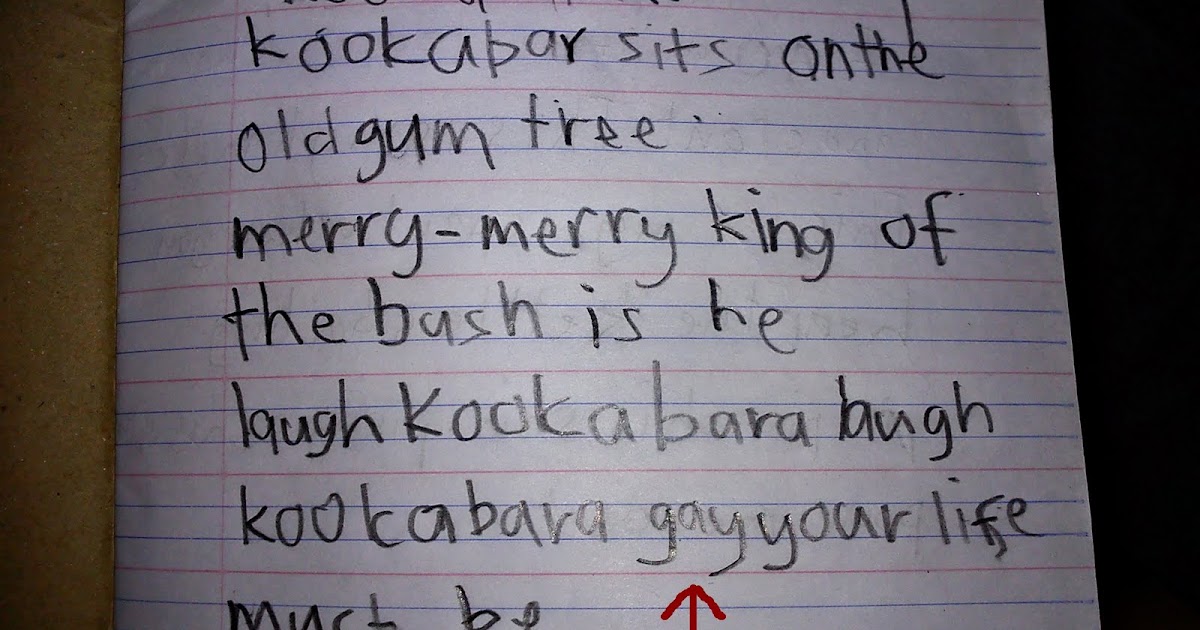 kookabar sits on the
old gum tree.
merry-merry king of
the bush is he
laugh Kookabara laugh
kookabara gay your life
must be